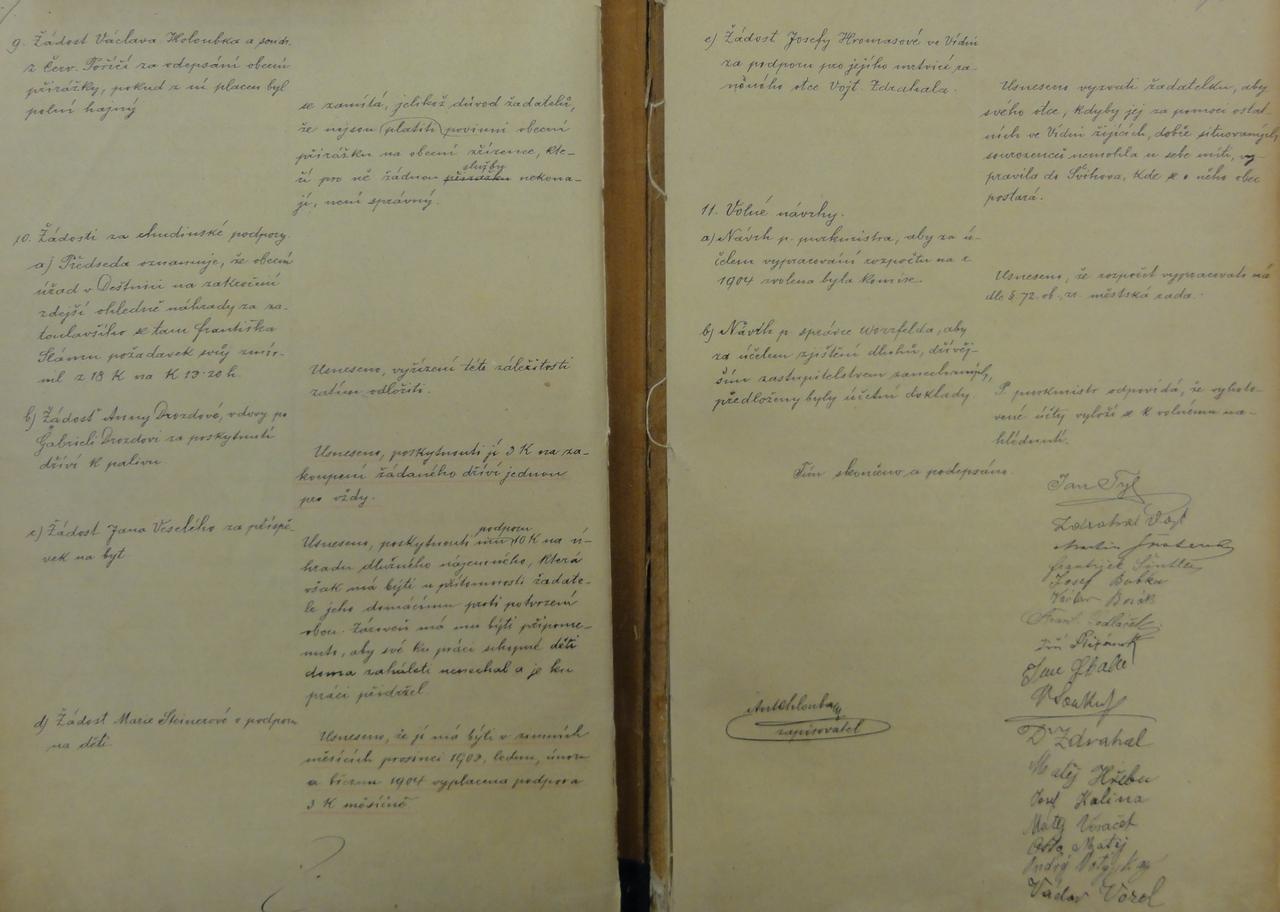 9. Žádost Václava Holoubka a soudr.
z Červ. Poříčí za odepsání obecní
přirážky, pokud z ní placen byl
polní hajný
se zamítá, jelikož důvod žadatelů,
že nejsou platiti povinni obecní
přirážku na obecní zřízence, kte-
ří pro ně žádnou přirážku služby nekona-
jí, není správný.
10. Žádosti za chudinské podpory.
a) Předseda oznamuje, že obecní
úřad v Deštnici na zakročení
zdejší ohledně náhrady za za-
toulavšího se tam Františka
Slámu požadavek svůj zmír-
nil z 18 K na K 13·20 h.
Usneseno, vyřízení této záležitosti
zatím odložiti.
b) Žádost Anny Drozdové, vdovy po
Gabrieli Drozdovi za poskytnutí
dříví k palivu
Usneseno, poskytnouti jí 3 K na za-
koupení žádaného dříví jednou
pro vždy.
c) Žádost Jana Veselého za příspě-
vek na byt
Usneseno, poskytnouti mu podporu 10 K na ú-
hradu dlužného nájemného, která
však má býti u přítomnosti žadate-
le jeho domácímu proti potvrzení
obou. Zároveň má mu býti připome-
nuto, aby své ku práci schopné děti
doma zaháleti nenechal a je ku
práci přidržel.
d) Žádost Marie Steinerové o podporu
na děti.
Usneseno, že jí má býti v zimních
měsících prosinci 1903, lednu, únoru
a březnu 1904 vyplacena podpora
3 K měsíčně
e) Žádost Josefy Hromasové ve Vídni
za podporu pro jejího mrtvicí ra-
něného otce Vojt. Zdrahala.
Usneseno vyzvati žadatelku, aby
svého otce, kdyby jej za pomoci ostat-
ních ve Vídni žijících, dobře situovaných,
sourozenců nemohla u sebe míti, vy-
pravila do Švihova, kde se o něho obec
postará.
11. Volné návrhy.
a) Návrh p. purkmistra, aby za ú-
čelem vypracování rozpočtu na r.
1904 zvolena byla komise.
Usneseno, že rozpočet vypracovati má
dle § 72. ob. zř. městská rada.
b) Návrh p. správce Wornfelda, aby
za účelem zjištění dluhů, dřívěj-
ším zastupitelstvem zanechaných,
předloženy byly účetní doklady.
P. purkmistr odpovídá, že vyhoto-
vené účty vyloží se k volnému na-
hlédnutí.
Tím skončeno a podepsáno.
Jan Tyl
Zdrahal Vojt
Martin
František
Josef Bobka
Václav Borák
Frant. Sedláček
Jiří Štěpánek
Jan
V Soukup
Dr Zdrahal
Matěj Hřebec
Josef Kalina
Matěj Voráček
Matěj
Ondřej
Václav Vozel
Ant Chlouba
zapisovatel